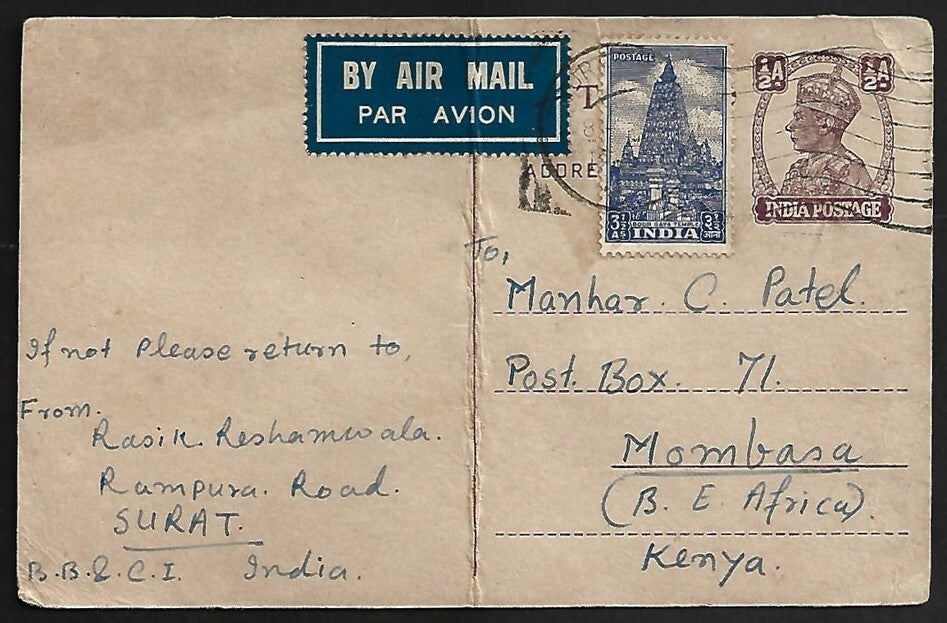 BY AIR MAIL
PAR AVION
T
ADDRE
POSTAGE
3½ As
BODH GAYA TEMPLE
INDIA
३½ आना
½A
½A
INDIA POSTAGE
To,
Manhar. C. Patel.
Post. Box. 71.
Mombasa
(B. E. Africa).
Kenya.
If not Please return to,
From.
Rasik. Reshamwala.
Rampura. Road.
SURAT.
B.B.&.C.I. India.